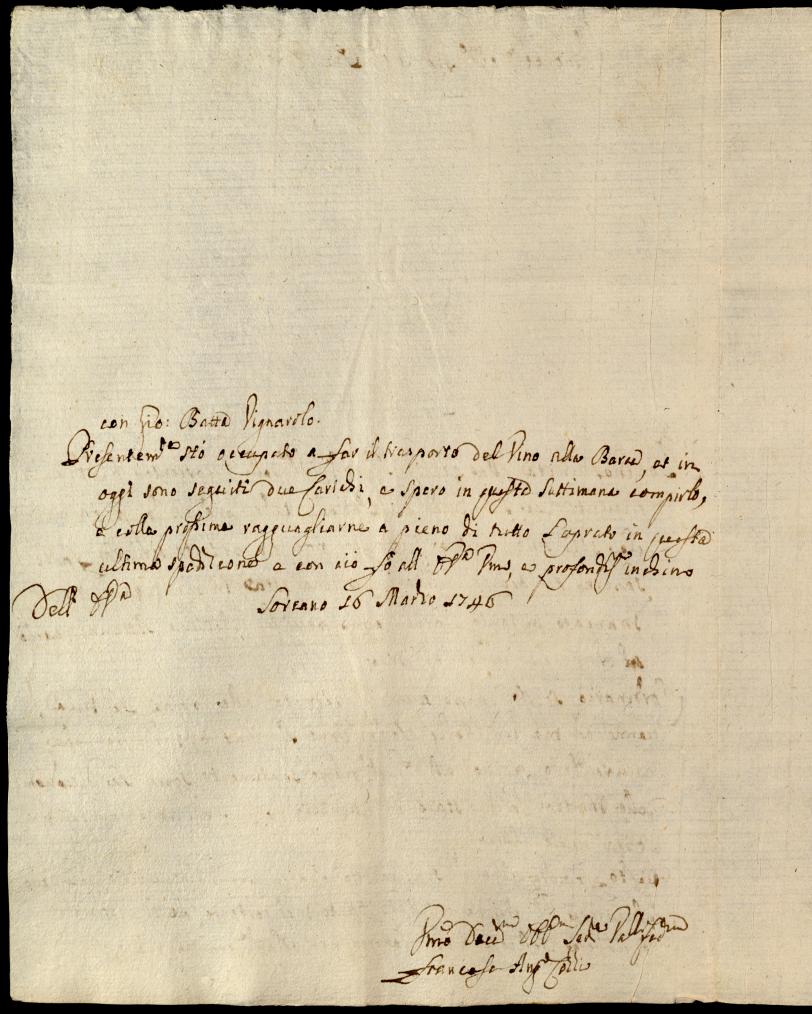 con Gio: Batta Vignarolo.
Presentem.te stò occupato a far il trasporto del Vino alla Barca, et in
oggi sono seguiti due Carichi, e spero in questa Settimana compirlo,
e colla prossima ragguagliarne a pieno di tutto l'oprato in questa
ultima spedizione e con ciò fò all' , e profondiss.o inchino
Dell'
Soreano 16 Marzo 1746
Francesco Ang.o